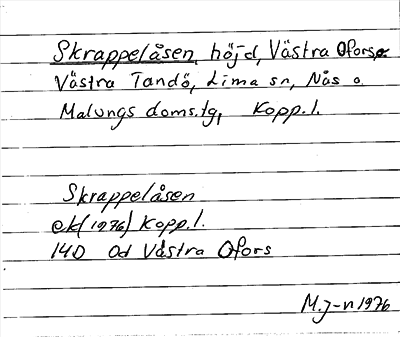 Skrappelåsen, höjd, Västra Ofors,
Västra Tandö, Lima sn, Nås o.
Malungs doms.tg, Kopp.l.
Skrappelåsen
ek(1976) Kopp.l.
14D 0d Västra Ofors
M.J-n 1976